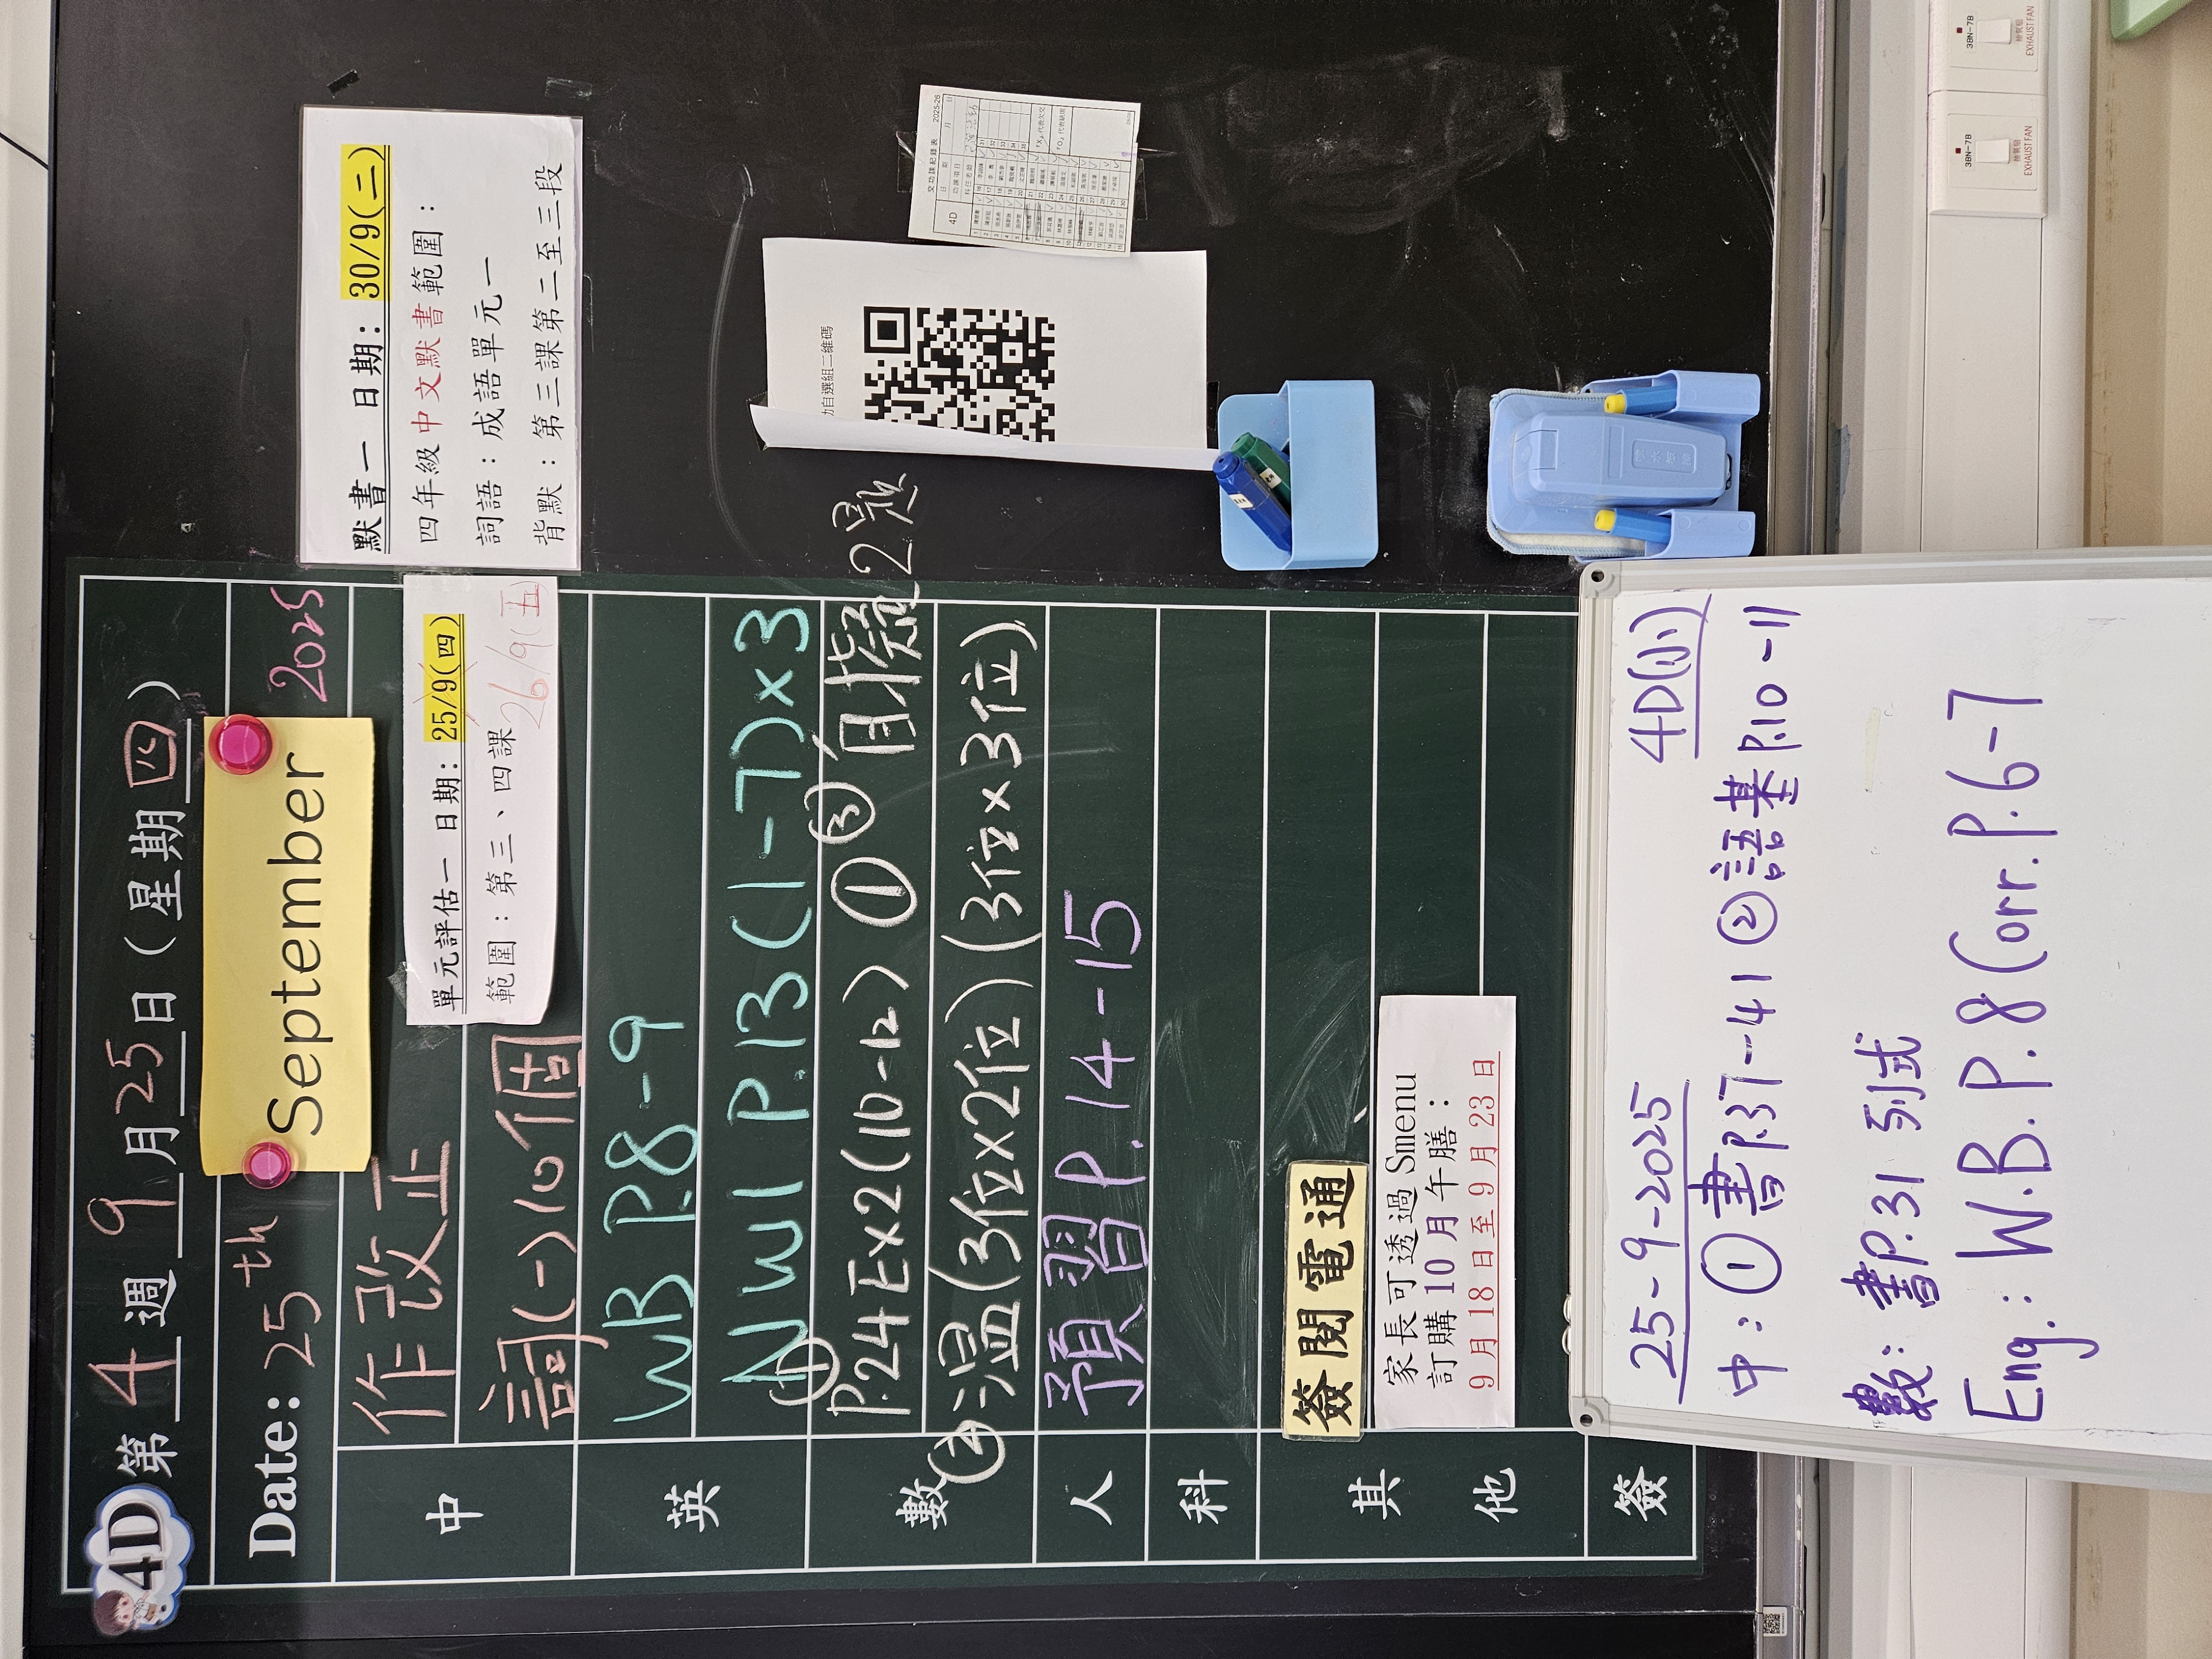 4D 第 4 週 9 月 25 日 ( 星期 四 )
Date: 25th September 2025
中
作改正
詞(一) 10個
單元評估一 日期: 25/9(四)
26/9(五)
範圍：第三、四課
英
WB P.8-9
NW1 P.13 (1-7)x3
數
① P.24 Ex2 (10-12) ① ③ 自擬2題
② 溫(3位x2位) (3位x3位)
人
預習 P.14-15
科
其他
簽閱電通
家長可透過 Smenu
訂購 10 月午膳：
9 月 18 日至 9 月 23 日
簽
默書一 日期: 30/9(二)
四年級中文默書範圍：
詞語：成語單元一
背默：第三課第二至三段
自選組二維碼
交功課記錄表 2025-26
4D
25-9-2025 4D(小)
中：① 書P.37-41 ② 語基 P.10-11
數：書P.31 列式
Eng.: W.B. P.8 Corr. P.6-7
3BN-7B
抽氣扇
EXHAUST FAN
3BN-7B
抽氣扇
EXHAUST FAN